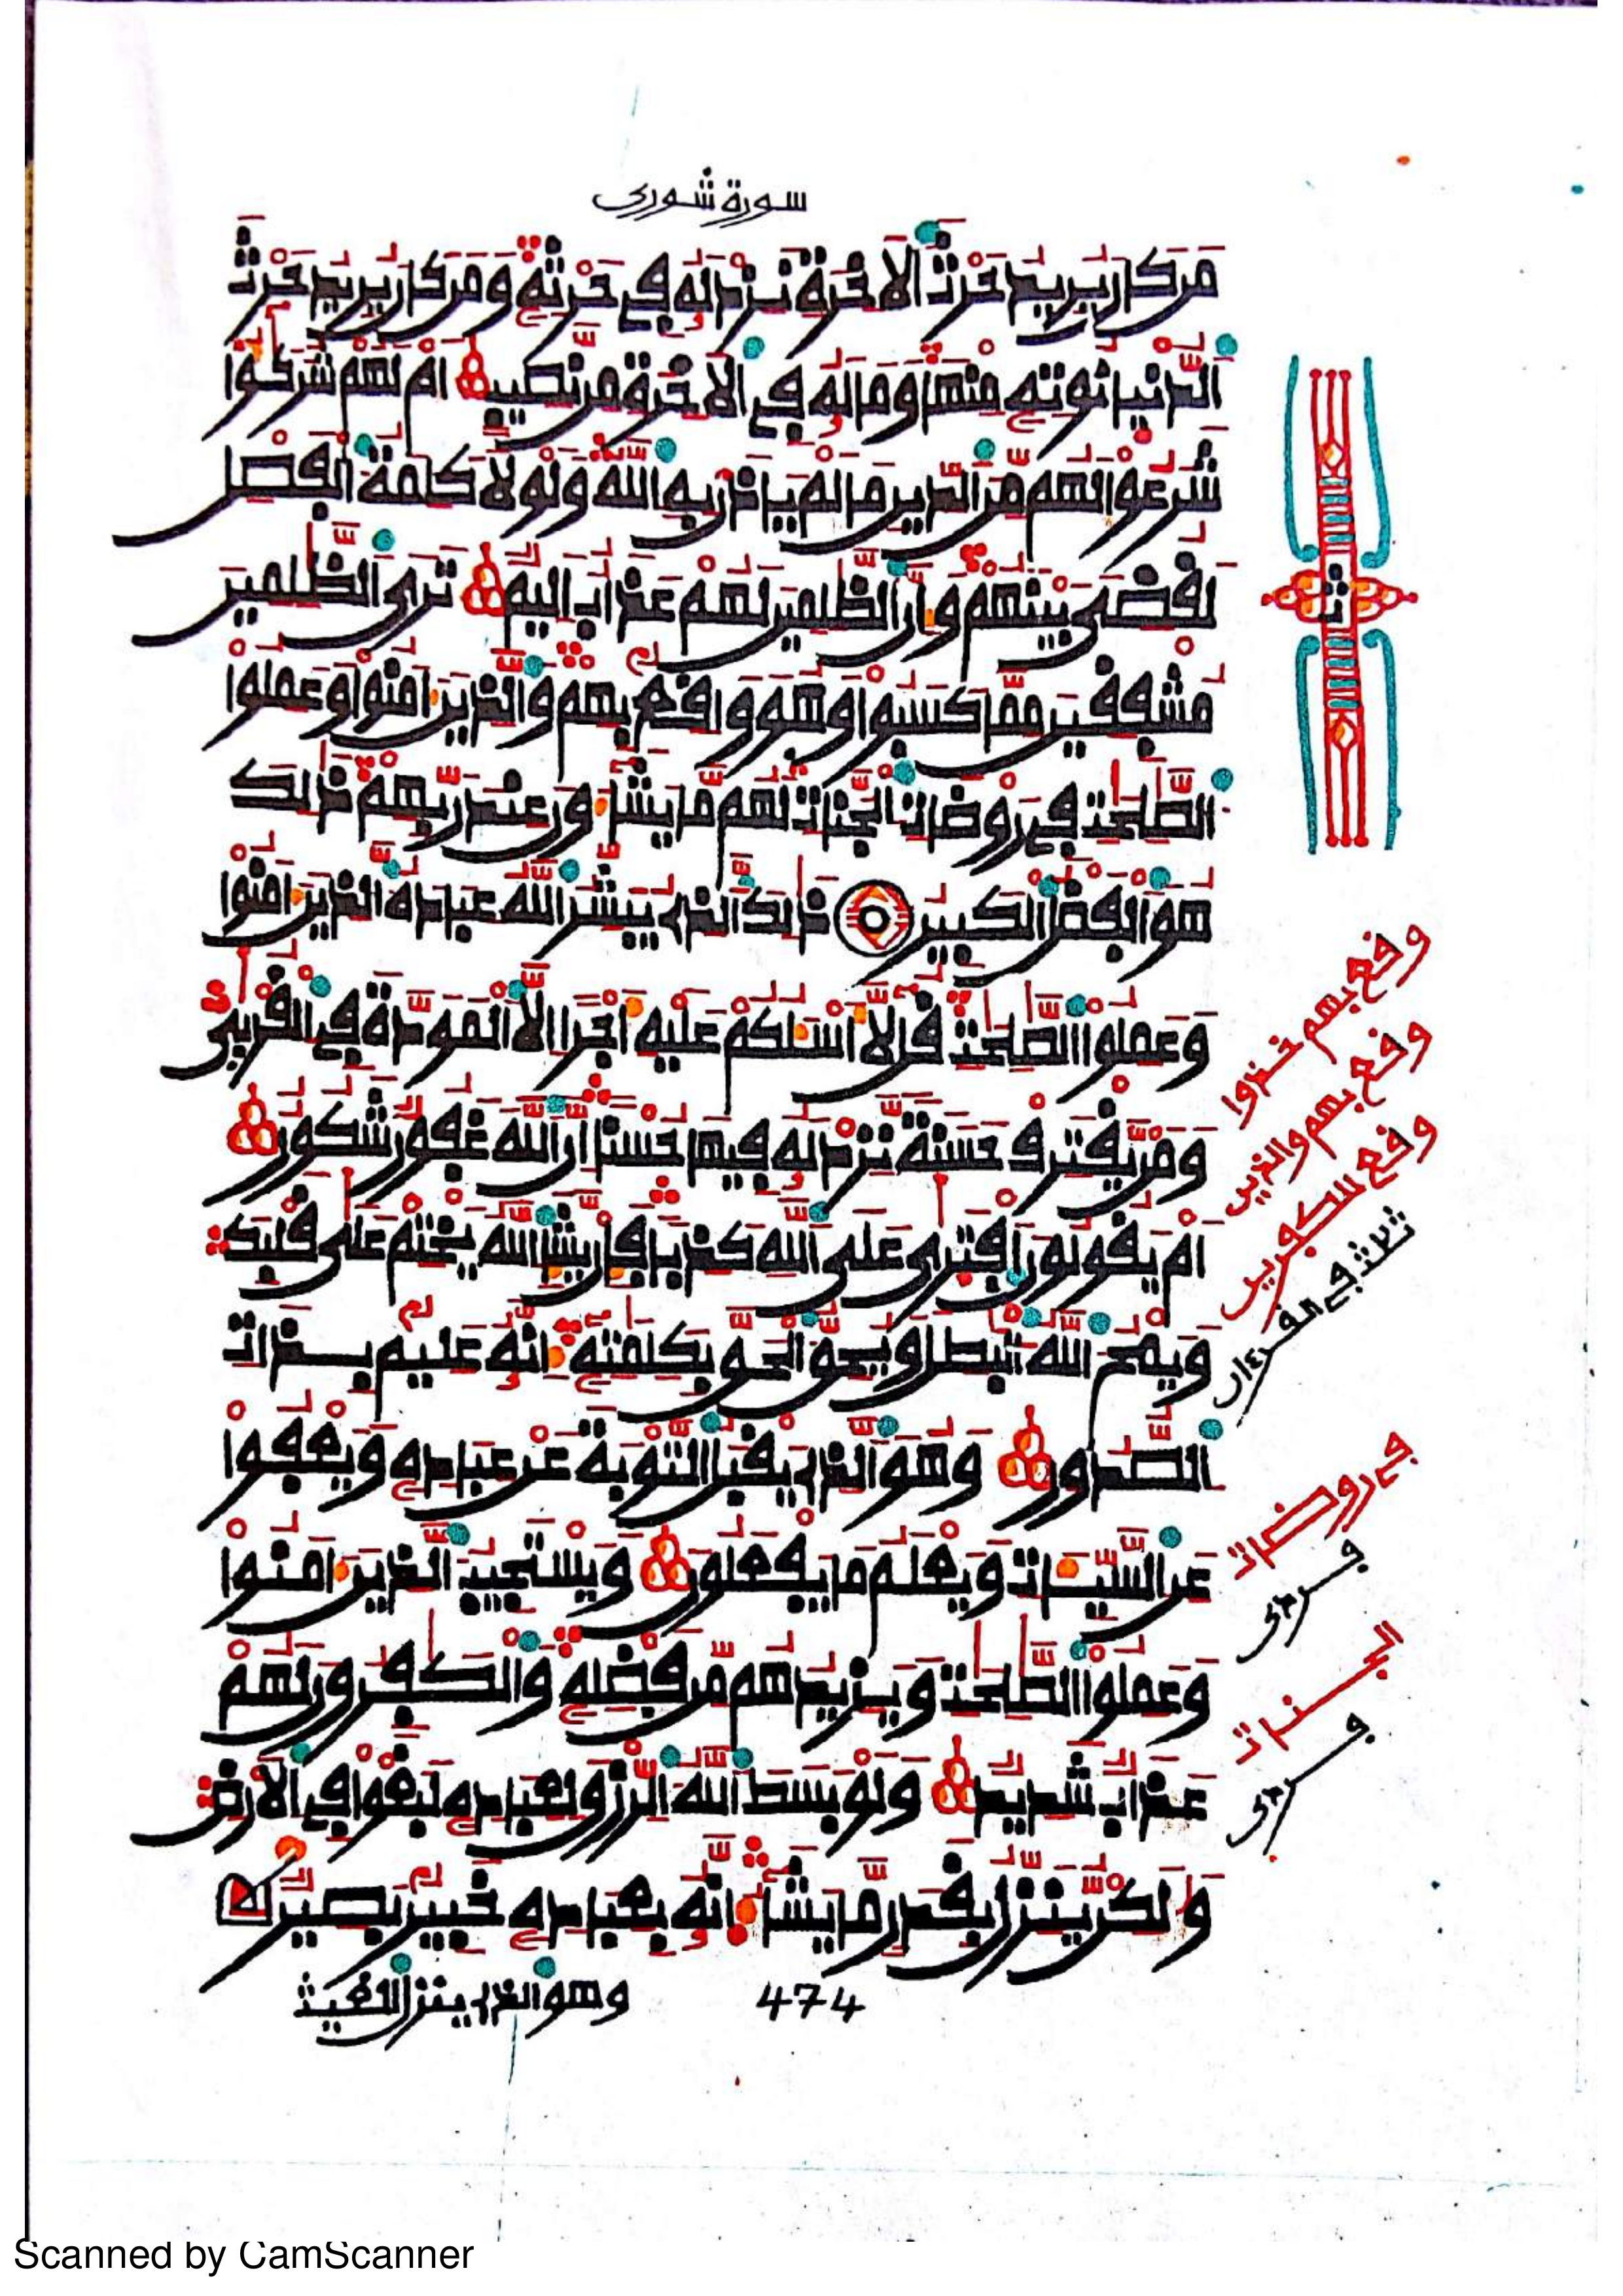 سورة شورى
مَن كَانَ يُرِيدُ حَرْثَ ٱلَاخِرَةِ نَزِدْ لَهُۥ فِى حَرْثِهِۦ وَمَن كَانَ يُرِيدُ حَرْثَ
ٱلدُّنْيَا نُوتِهِۦ مِنْهَا وَمَا لَهُۥ فِى ٱلَاخِرَةِ مِن نَّصِيبٍ اَمْ لَهُمْ شُرَكَٰٓؤُا
شَرَعُوا لَهُم مِّنَ ٱلدِّينِ مَا لَمْ يَاذَنۢ بِهِ ٱللَّهُ وَلَوْلَا كَلِمَةُ ٱلْفَصْلِ
لَقُضِىَ بَيْنَهُمْ وَإِنَّ ٱلظَّٰلِمِينَ لَهُمْ عَذَابٌ اَلِيمٌ تَرَى ٱلظَّٰلِمِينَ
مُشْفِقِينَ مِمَّا كَسَبُوا وَهُوَ وَاقِعٌۢ بِهِمْ وَٱلَّذِينَ ءَامَنُوا وَعَمِلُوا
ٱلصَّٰلِحَٰتِ فِى رَوْضَاتِ ٱلْجَنَّاتِ لَهُم مَّا يَشَآءُونَ عِندَ رَبِّهِمْ ذَٰلِكَ
هُوَ ٱلْفَضْلُ ٱلْكَبِيرُ ذَٰلِكَ ٱلَّذِى يُبَشِّرُ ٱللَّهُ عِبَادَهُ ٱلَّذِينَ ءَامَنُوا
وَعَمِلُوا ٱلصَّٰلِحَٰتِ قُل لَّآ أَسْـَٔلُكُمْ عَلَيْهِ أَجْرًا اِلَّا ٱلْمَوَدَّةَ فِى ٱلْقُرْبَىٰ
وَمَن يَقْتَرِفْ حَسَنَةً نَّزِدْ لَهُۥ فِيهَا حُسْنًا اِنَّ ٱللَّهَ غَفُورٌ شَكُورٌ
أَمْ يَقُولُونَ ٱفْتَرَىٰ عَلَى ٱللَّهِ كَذِبًا فَإِن يَشَإِ ٱللَّهُ يَخْتِمْ عَلَىٰ قَلْبِكَ
وَيَمْحُ ٱللَّهُ ٱلْبَٰطِلَ وَيُحِقُّ ٱلْحَقَّ بِكَلِمَٰتِهِۦٓ إِنَّهُۥ عَلِيمٌۢ بِذَاتِ
ٱلصُّدُورِ وَهُوَ ٱلَّذِى يَقْبَلُ ٱلتَّوْبَةَ عَنْ عِبَادِهِۦ وَيَعْفُوا
عَنِ ٱلسَّيِّـَٔاتِ وَيَعْلَمُ مَا يَفْعَلُونَ وَيَسْتَجِيبُ ٱلَّذِينَ ءَامَنُوا
وَعَمِلُوا ٱلصَّٰلِحَٰتِ وَيَزِيدُهُم مِّن فَضْلِهِۦ وَٱلْكَٰفِرُونَ لَهُمْ
عَذَابٌ شَدِيدٌ وَلَوْ بَسَطَ ٱللَّهُ ٱلرِّزْقَ لِعِبَادِهِۦ لَبَغَوْا فِى ٱلَارْضِ
وَلَٰكِن يُنَزِّلُ بِقَدَرٍ مَّا يَشَآءُ إِنَّهُۥ بِعِبَادِهِۦ خَبِيرٌۢ بَصِيرٌ
وهو الذى ينزل الغيث
474
ثمن
واقع بهم خذوا
واقع بهم والذين
واقع للكفرين
ثلاث فى القرءان
فى روضات
الجنات
Scanned by CamScanner